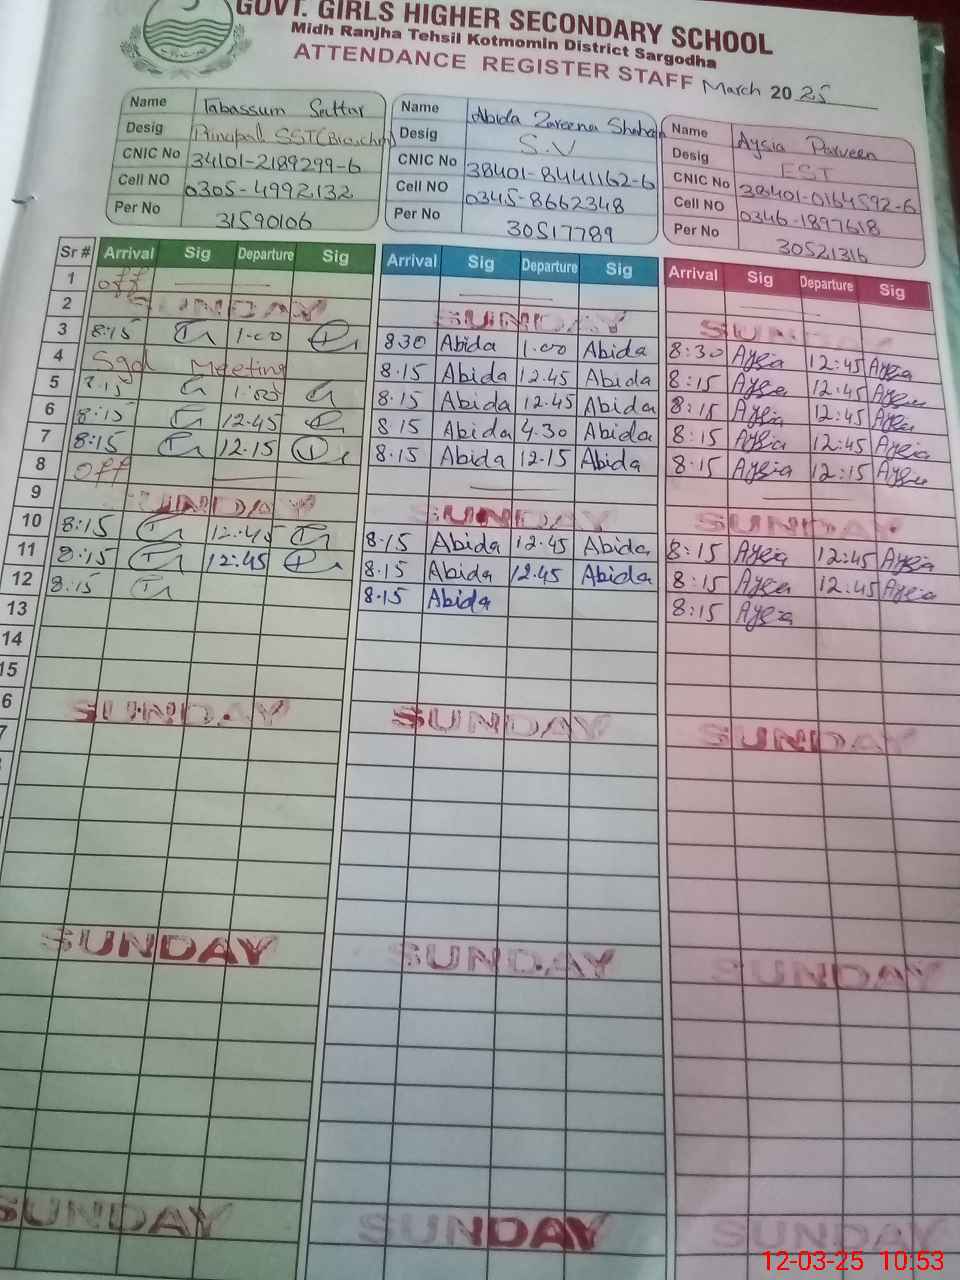 GOVT. GIRLS HIGHER SECONDARY SCHOOL
Midh Ranjha Tehsil Kotmomin District Sargodha
ATTENDANCE REGISTER STAFF March 2025
Name Tabassum Sattar
Desig Principal SST(Bio.chm)
CNIC No 34101-2189299-6
Cell NO 0305-4992132
Per No 31590106
Name Abida Zareena Shaheen
Desig S.V
CNIC No 38401-8441162-6
Cell NO 0345-8662348
Per No 30517789
Name Aysia Parveen
Desig EST
CNIC No 38401-0164592-6
Cell NO 0346-1897618
Per No 30521316
Sr # Arrival Sig Departure Sig Arrival Sig Departure Sig Arrival Sig Departure Sig
1 off
2 SUNDAY SUNDAY SUNDAY
3 8:15 1.00 830 Abida 1.00 Abida 8:30 Aysia 12:45 Aysia
4 Sgd Meeting 8.15 Abida 12.45 Abida 8:15 Aysia 12:45 Aysia
5 8.15 1:00 8.15 Abida 12.45 Abida 8:15 Aysia 12:45 Aysia
6 8:15 12.45 8 15 Abida 4.30 Abida 8:15 Aysia 12:45 Aysia
7 8:15 12.15 8.15 Abida 12.15 Abida 8:15 Aysia 12:15 Aysia
8 Off
9 SUNDAY SUNDAY SUNDAY
10 8:15 12.45 8.15 Abida 12.45 Abida 8:15 Aysia 12:45 Aysia
11 8:15 12:45 8.15 Abida 12.45 Abida 8:15 Aysia 12:45 Aysia
12 8:15 8.15 Abida 8:15 Aysia
13
14
15
6 SUNDAY SUNDAY SUNDAY
7
SUNDAY SUNDAY SUNDAY
SUNDAY SUNDAY SUNDAY
12-03-25 10:53